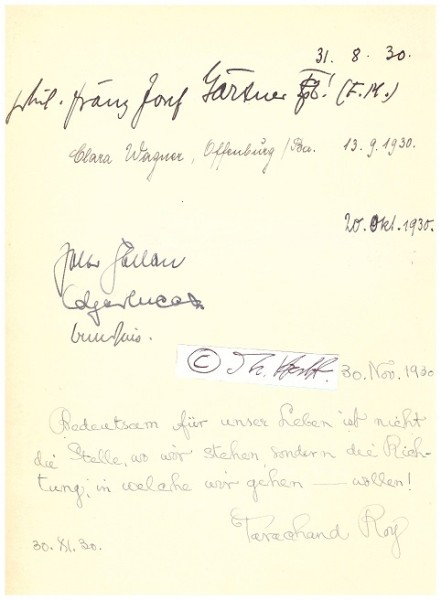 31. 8. 30.
phil. Franz Josef Gärtner (F.M.)
Clara Wagner, Offenburg / Ba. 13.9.1930.
20. Okt. 1930.
Edgar Lucas
©
30. Nov. 1930
Bedeutsam für unser Leben ist nicht
die Stelle, wo wir stehen sondern die Rich-
tung, in welche wir gehen — wollen!
Tarachand Roy
30. XI. 30.